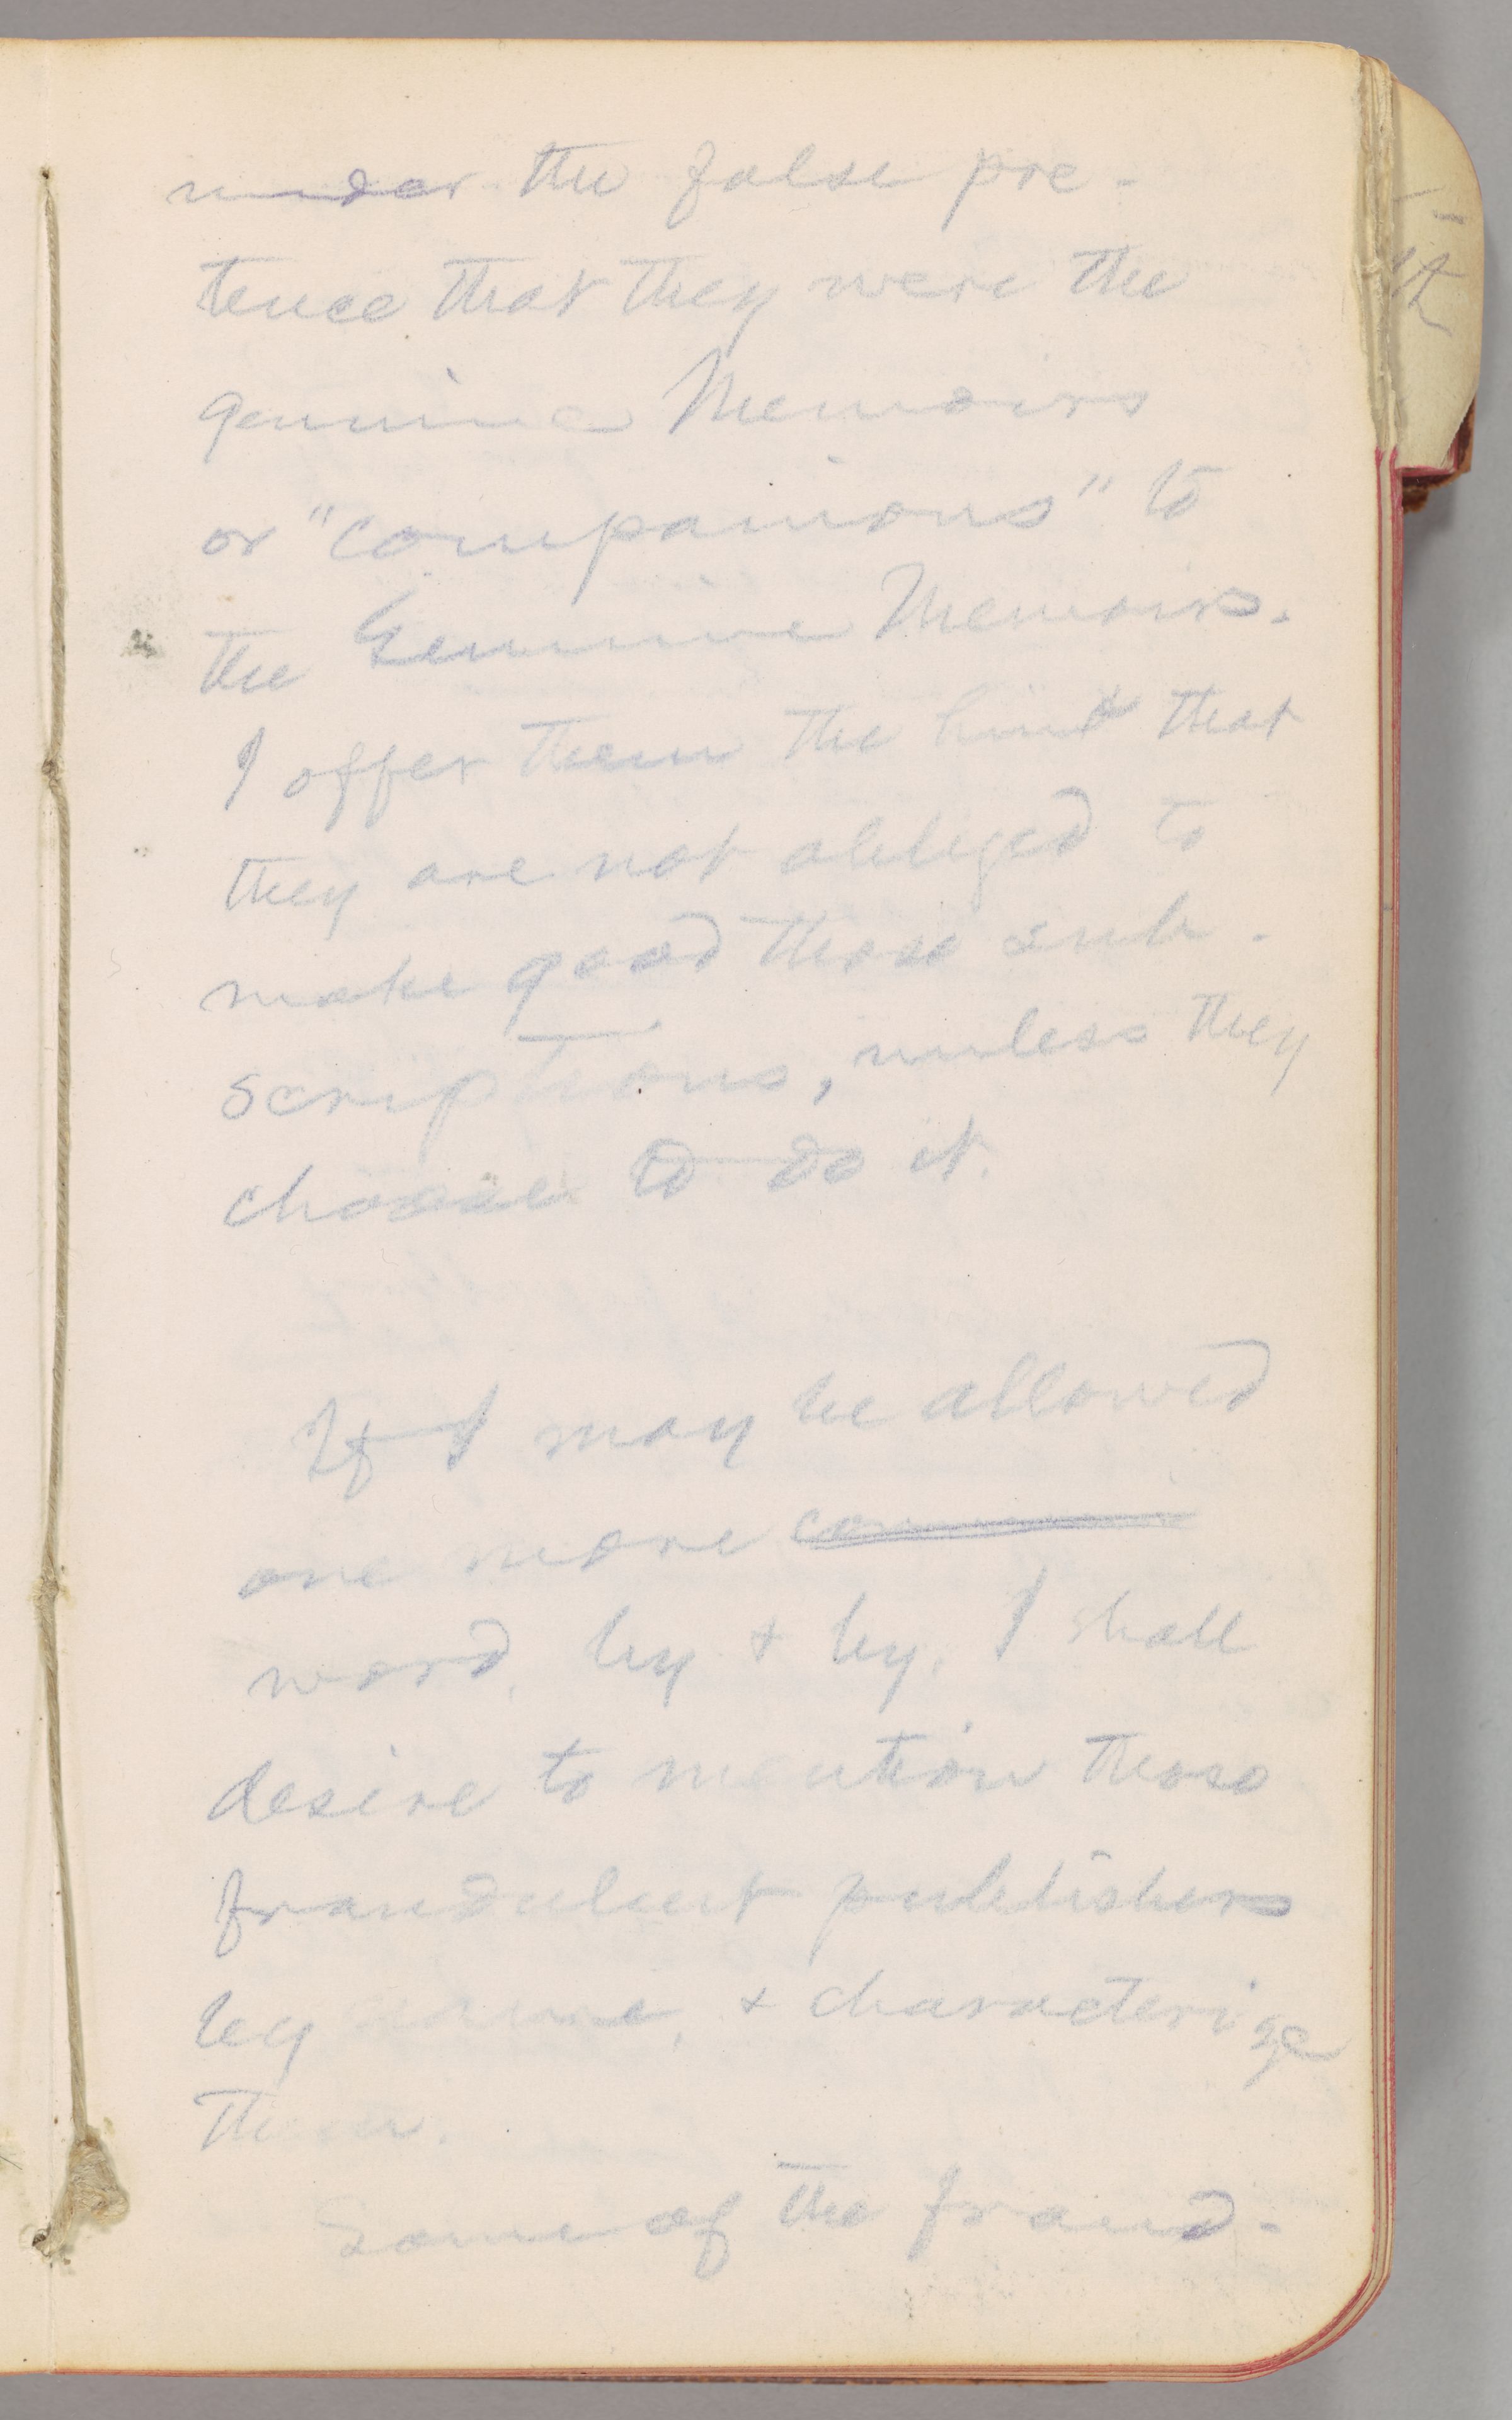 under the false pre-
tence that they were the
genuine Memoirs
or "companions" to
the Genuine Memoirs.
I offer them the hint that
they are not obliged to
make good those sub-
scriptions, unless they
choose to do it.
If I may be allowed
one more communi
word, by & by, I shall
desire to mention those
fraudulent publishers
by name, & characterize
them.
Some of the fraud-